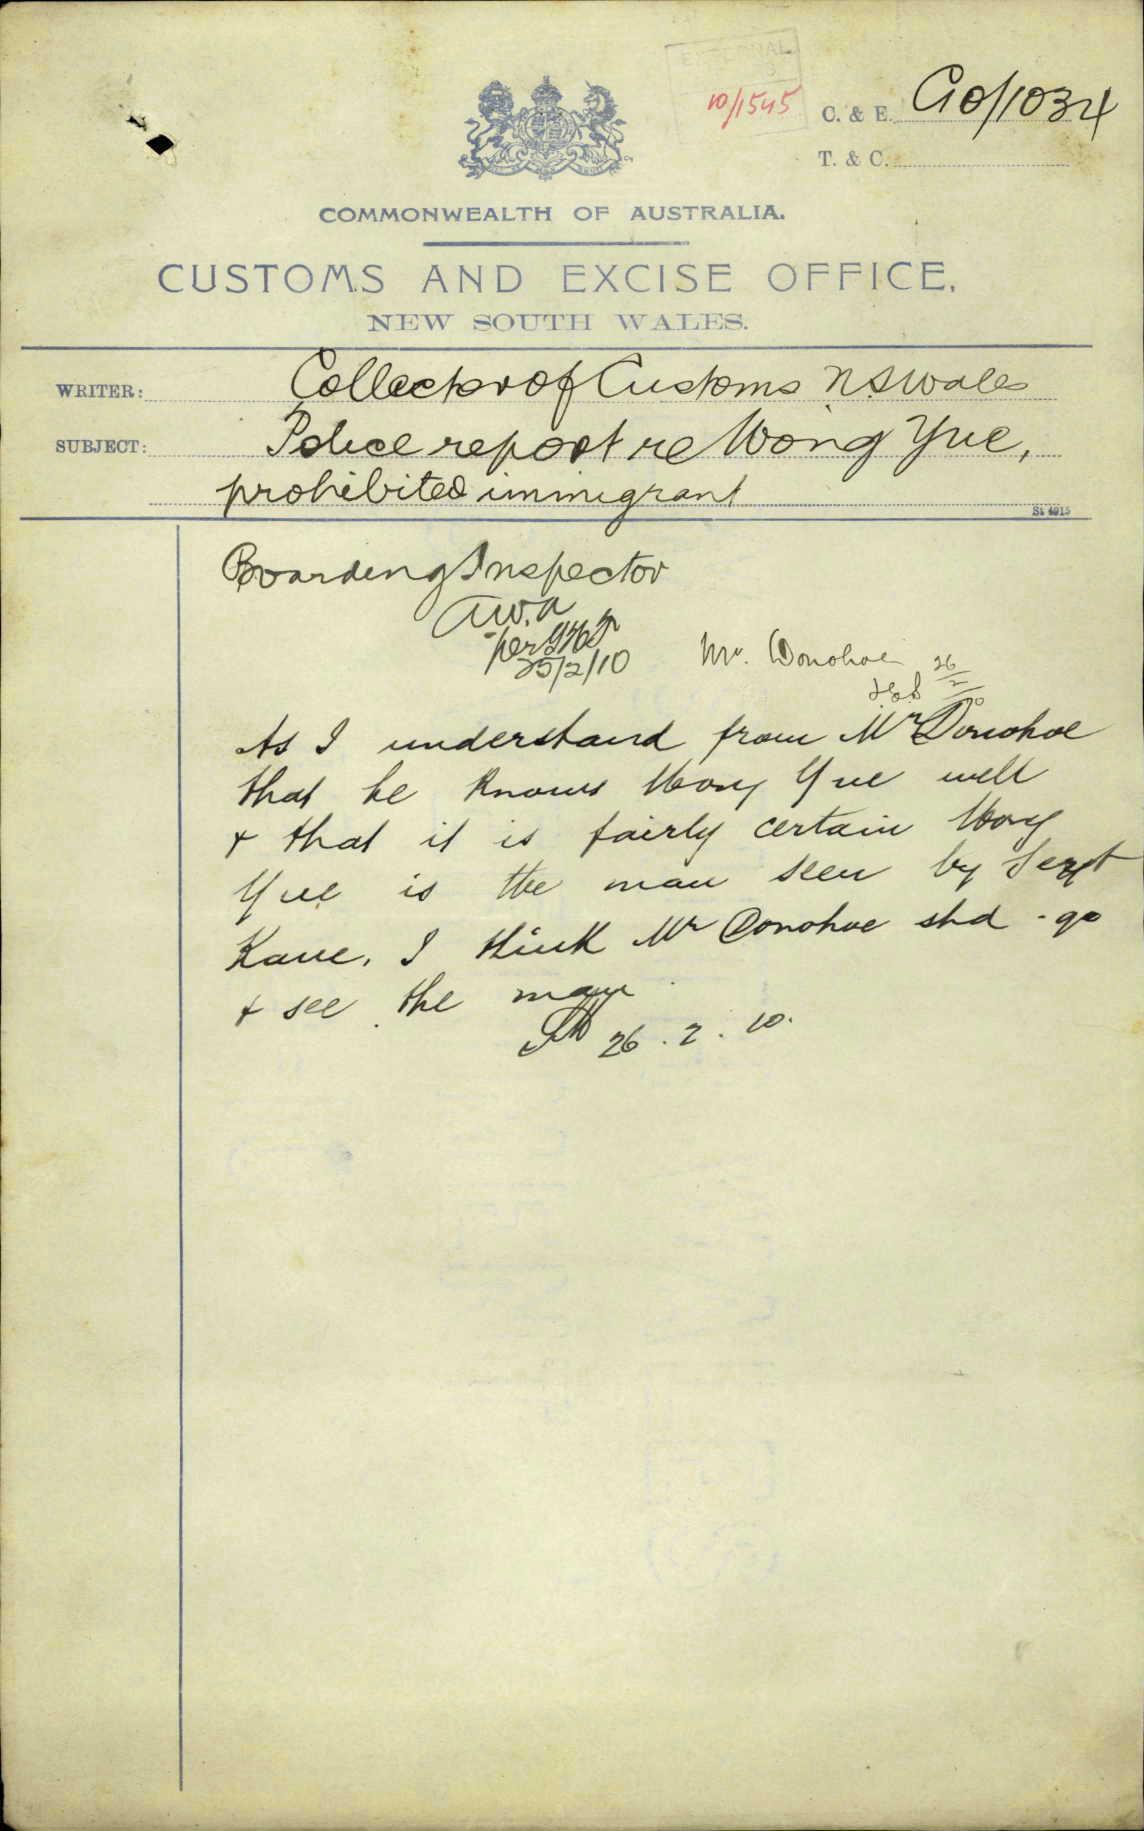 10/1545
C. & E. G10/1034
T. & C.
COMMONWEALTH OF AUSTRALIA.
CUSTOMS AND EXCISE OFFICE,
NEW SOUTH WALES.
WRITER: Collector of Customs N.S Wales
SUBJECT: Police report re Wong Yue,
prohibited immigrant
St 4915
Boarding Inspector
A.W.A
per
25/2/10
Mr. Donohoe 26/2/10
As I understand from Mr Donohoe
that he knows Wong Yue well
& that it is fairly certain Wong
Yue is the man seen by Sergt
Kane. I think Mr Donohoe shd - go
& see the man
26 . 2 . 10.